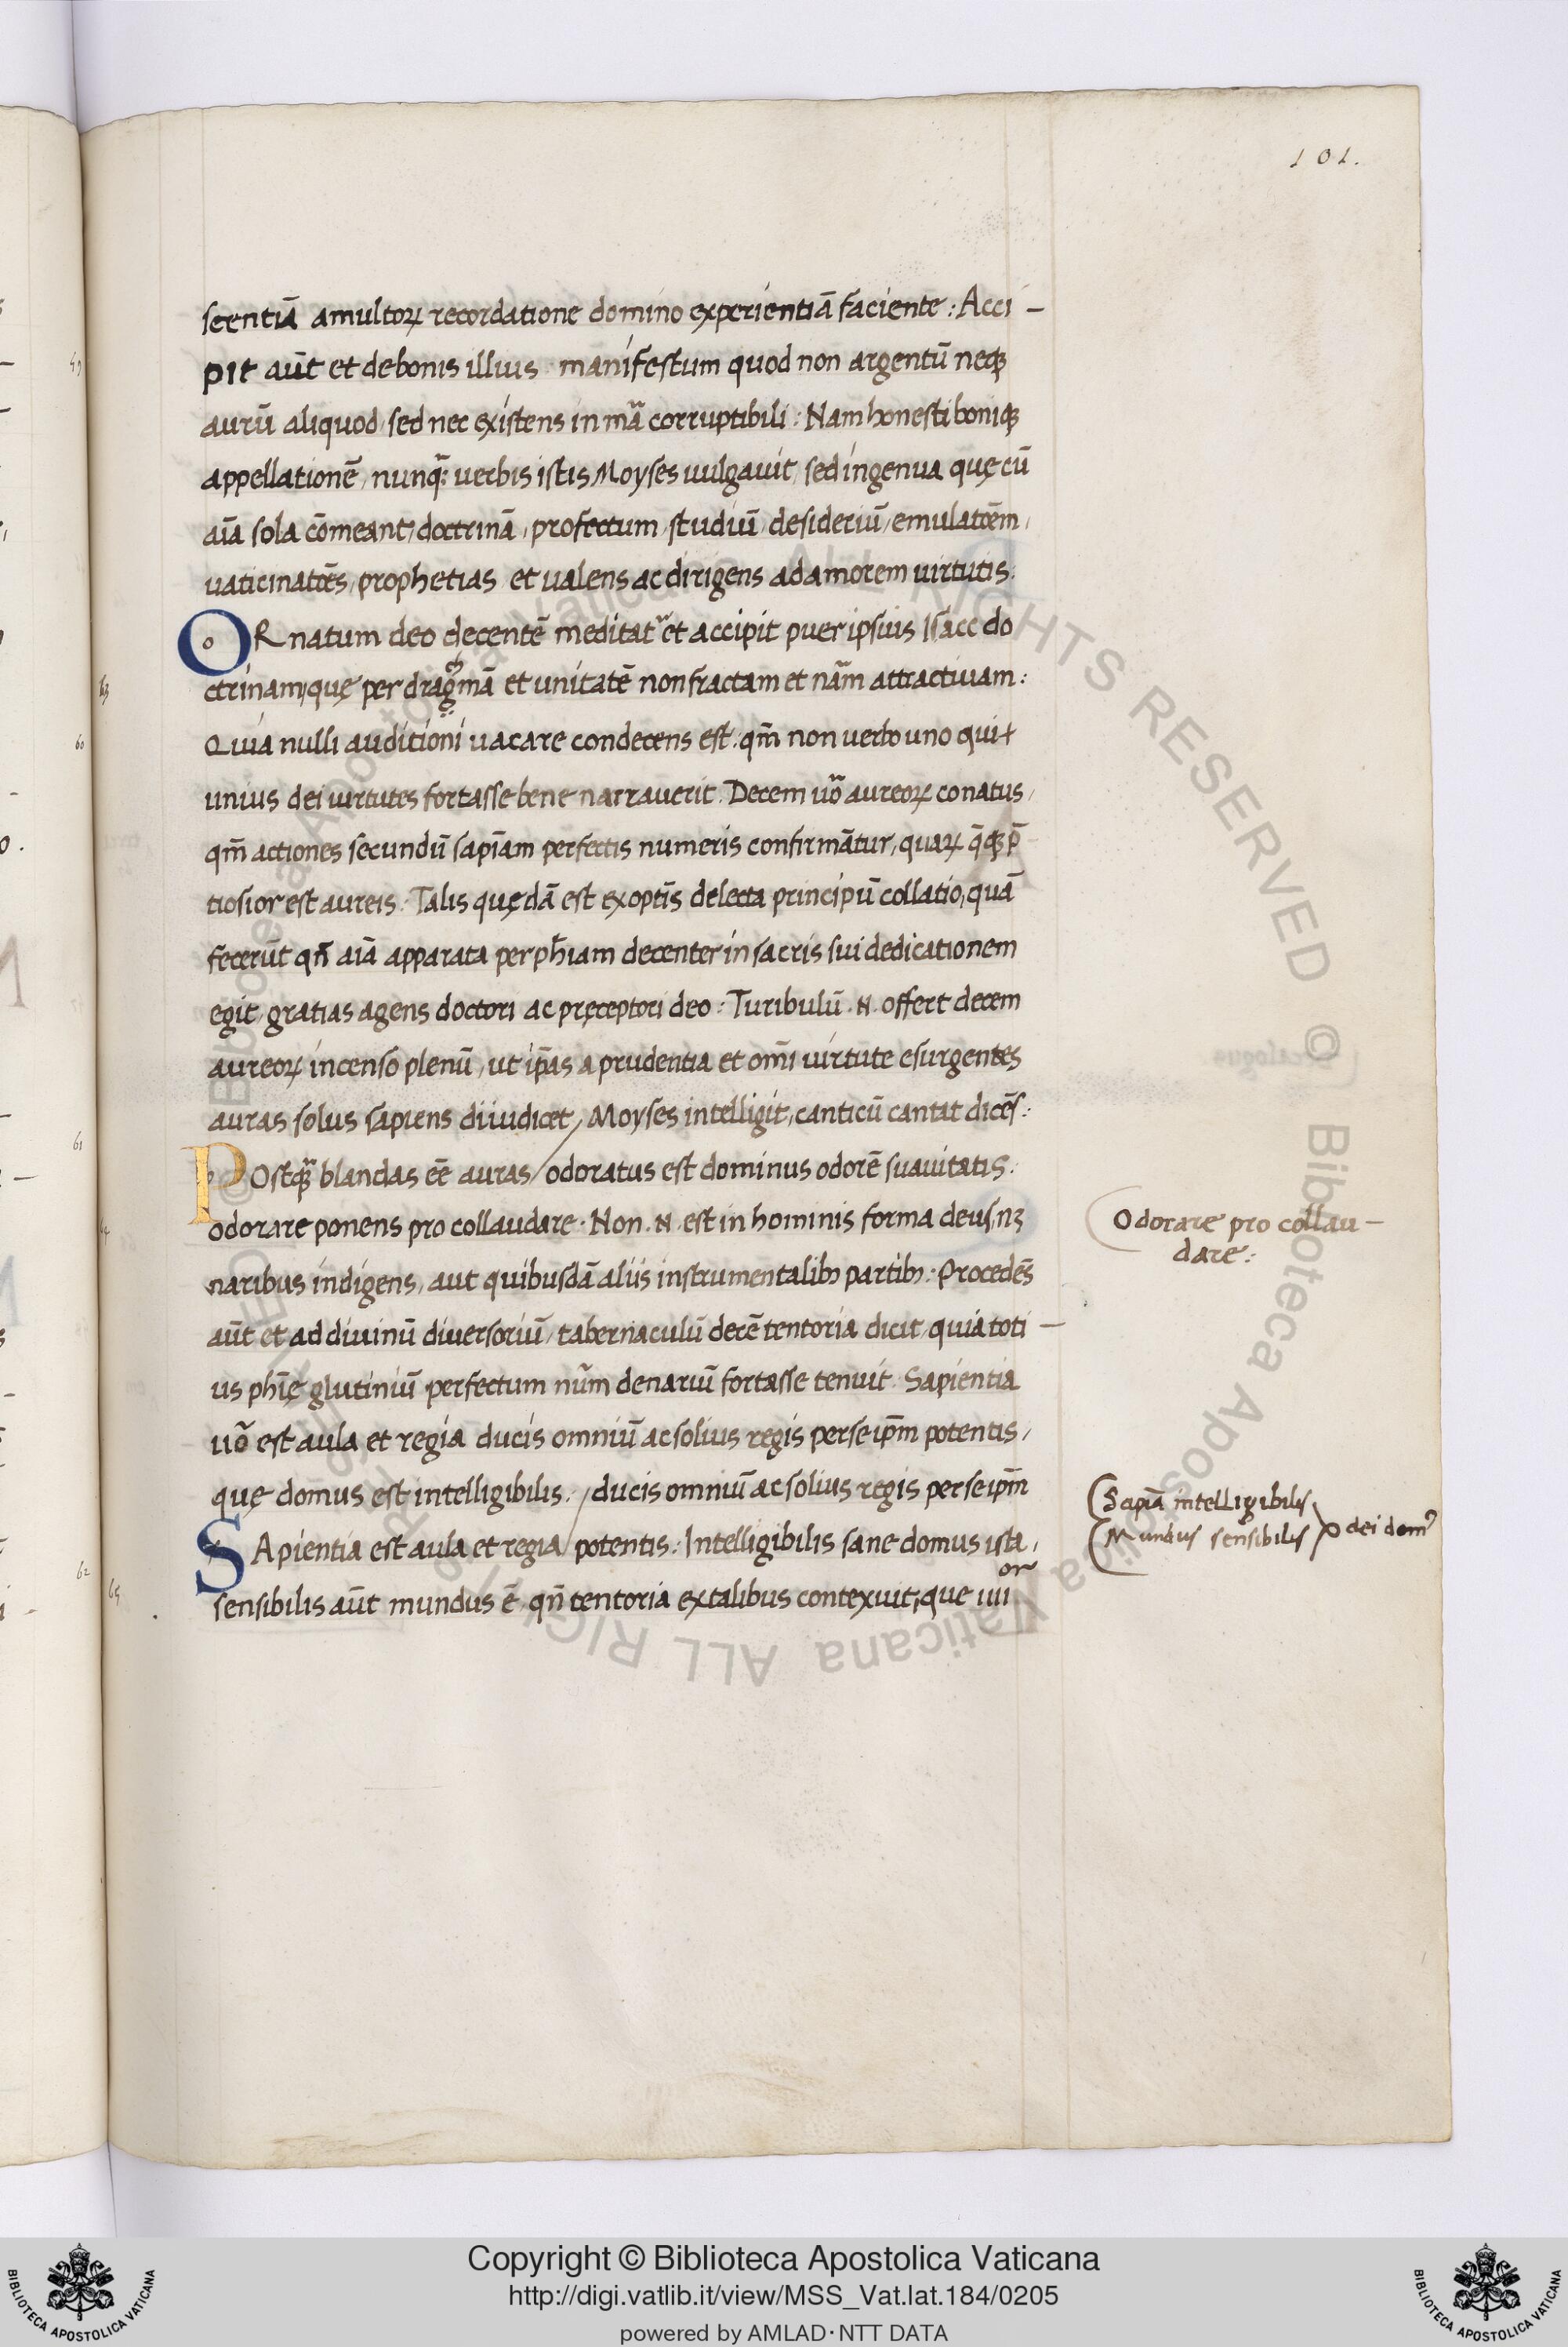 101.
scentiā amultoꝝ recordatione domino experientiā faciente : Acci –
pit aūt et debonis illius manifestum quod non argentū neqꝫ
aurū aliquod, sed nec existens in mā corruptibili : Nam honesti boniqꝫ
appellationē, nunqꝫ uerbis istis Moyses uulgauit, sed ingenua quę cū
aīa sola cōmeant, doctrinā, profectum, studiū, desideriū, emulatōēm,
uaticinatōēs, prophetias et ualens ac dirigens ad amorem uirtutis.
ORnatum deo decentē meditat᷑ et accipit puer ipsius Isaac do
ctrinam, quę per dragmā et unitatē non fractam et nāȝm attractiuam :
Quia nulli auditioni uacare condecens est. qm̄ non uerbo uno qui
unius dei uirtutes fortasse bene narrauerit. Decem uō aureoꝝ conatus,
qm̄ actiones secundū sapīam perfectis numeris confirmātur, quaꝝ q̄qꝫ p̄
tiosior est aureis. Talis quędā est ex optīs delecta principū collatio, quā
fecerūt qn̄ aīā apparata per ph̄iam decenter in sacris sui dedicationem
egit, gratias agens doctori ac pręceptori deo : Turibulū .N. offert decem
aureoꝝ incenso plenū, ut ip̄as a prudentia et om̄i uirtute esurgentes
auras solus sapiens diiudicet, Moyses intelligit, canticū cantat dicēs :
POstqꝫ blandas eē auras / odoratus est dominus odorē suauitatis.
odorare ponens pro collaudare. Non .N. est in hominis forma deus, nꝫ
naribus indigens, aut quibusdā aliis instrumentalibꝫ partibꝫ. Procedēs
aūt et ad diuinū diuersoriū, tabernaculū decē tentoria dicit, quia toti –
us ph̄ię glutiniū perfectum nūm denariū fortasse tenuit. Sapientia
uō est aula et regia ducis omniū ac solius regis per se ip̄m potentis,
quę domus est intelligibilis. / ducis omniū ac solius regis per se ip̄m
SApientia est aula et regia / potentis. Intelligibilis sane domus ista,
sensibilis aūt mundus ē, qn̄ tentoria ex talibus contexuit, que iiii or
Odorare pro collau –
dare :
Sapīa intelligibilis
Mundus sensibilis
dei dom⁹
59
63
60
61
62
65
ALL RIGHTS RESERVED © Biblioteca Apostolica Vaticana ALL RIGHTS RESERVED © Biblioteca Apostolica Vaticana
Copyright © Biblioteca Apostolica Vaticana
http://digi.vatlib.it/view/MSS_Vat.lat.184/0205
powered by AMLAD · NTT DATA
BIBLIOTECA APOSTOLICA VATICANA
BIBLIOTECA APOSTOLICA VATICANA